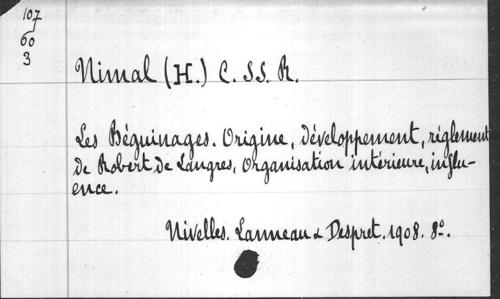 107
60
3
Nimal (H.) C. SS. R.
Les Béguinages. Origine, développement, règlement
de Robert de Langres, Organisation intérieure, influ-
ence.
Nivelles. Lanneau & Despret. 1908. 8º.